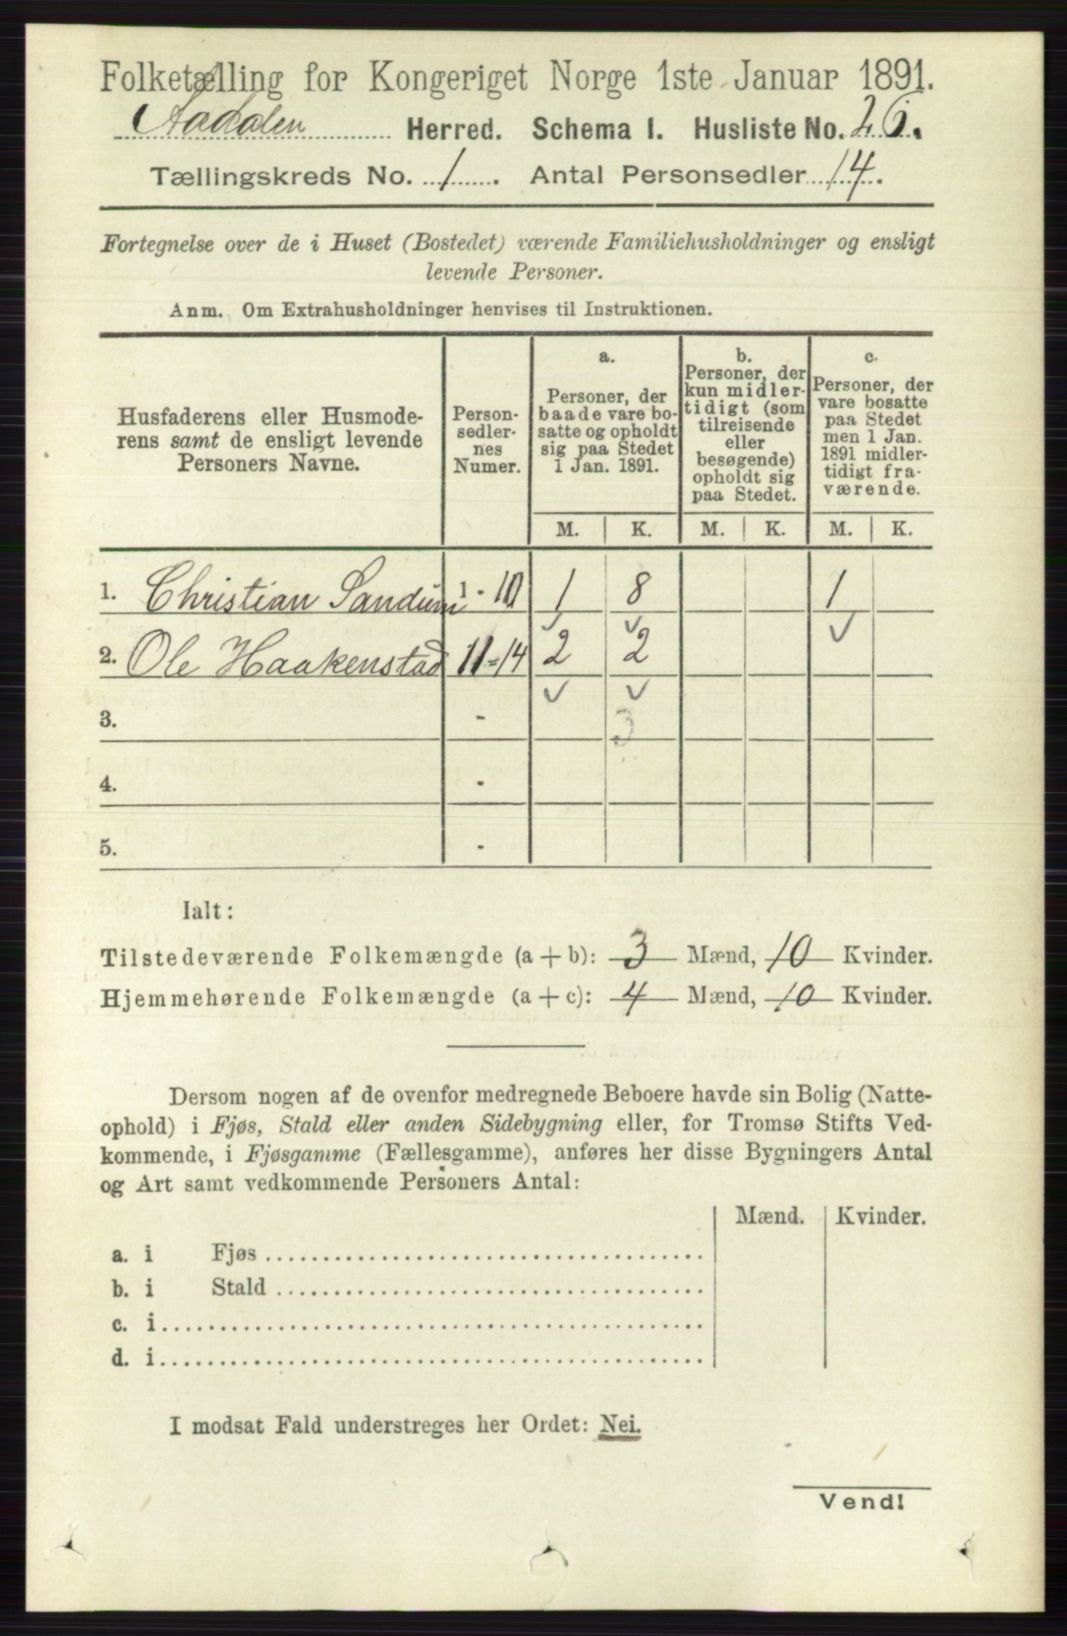 Folketælling for Kongeriget Norge 1ste Januar 1891.
Aadalen Herred. Schema I. Husliste No. 26.
Tællingskreds No. 1. Antal Personsedler 14.
Fortegnelse over de i Huset (Bostedet) værende Familiehusholdninger og ensligt
levende Personer.
Anm. Om Extrahusholdninger henvises til Instruktionen.
Husfaderens eller Husmode-
rens samt de ensligt levende
Personers Navne.
Person-
sedler-
nes
Numer.
a.
Personer, der
baade vare bo-
satte og opholdt
sig paa Stedet
1 Jan. 1891.
b.
Personer, der
kun midler-
tidigt (som
tilreisende
eller
besøgende)
opholdt sig
paa Stedet.
c.
Personer, der
vare bosatte
paa Stedet
men 1 Jan.
1891 midler-
tidigt fra-
værende.
M. K. M. K. M. K.
1. Christian Sandum 1 - 10 1 8 1
2. Ole Haakenstad 11-14 2 2
3. - 3
4. -
5. -
Ialt:
Tilstedeværende Folkemængde (a + b): 3 Mænd, 10 Kvinder.
Hjemmehørende Folkemængde (a + c): 4 Mænd, 10 Kvinder.
Dersom nogen af de ovenfor medregnede Beboere havde sin Bolig (Natte-
ophold) i Fjøs, Stald eller anden Sidebygning eller, for Tromsø Stifts Ved-
kommende, i Fjøsgamme (Fællesgamme), anføres her disse Bygningers Antal
og Art samt vedkommende Personers Antal:
Mænd. Kvinder.
a. i Fjøs
b. i Stald
c. i
d. i
I modsat Fald understreges her Ordet: Nei.
Vend!